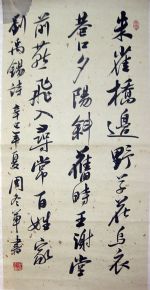 朱雀橋邊野草花烏衣
巷口夕陽斜舊時王謝堂
前燕飛入尋常百姓家
劉禹錫詩 年夏 周 軍書